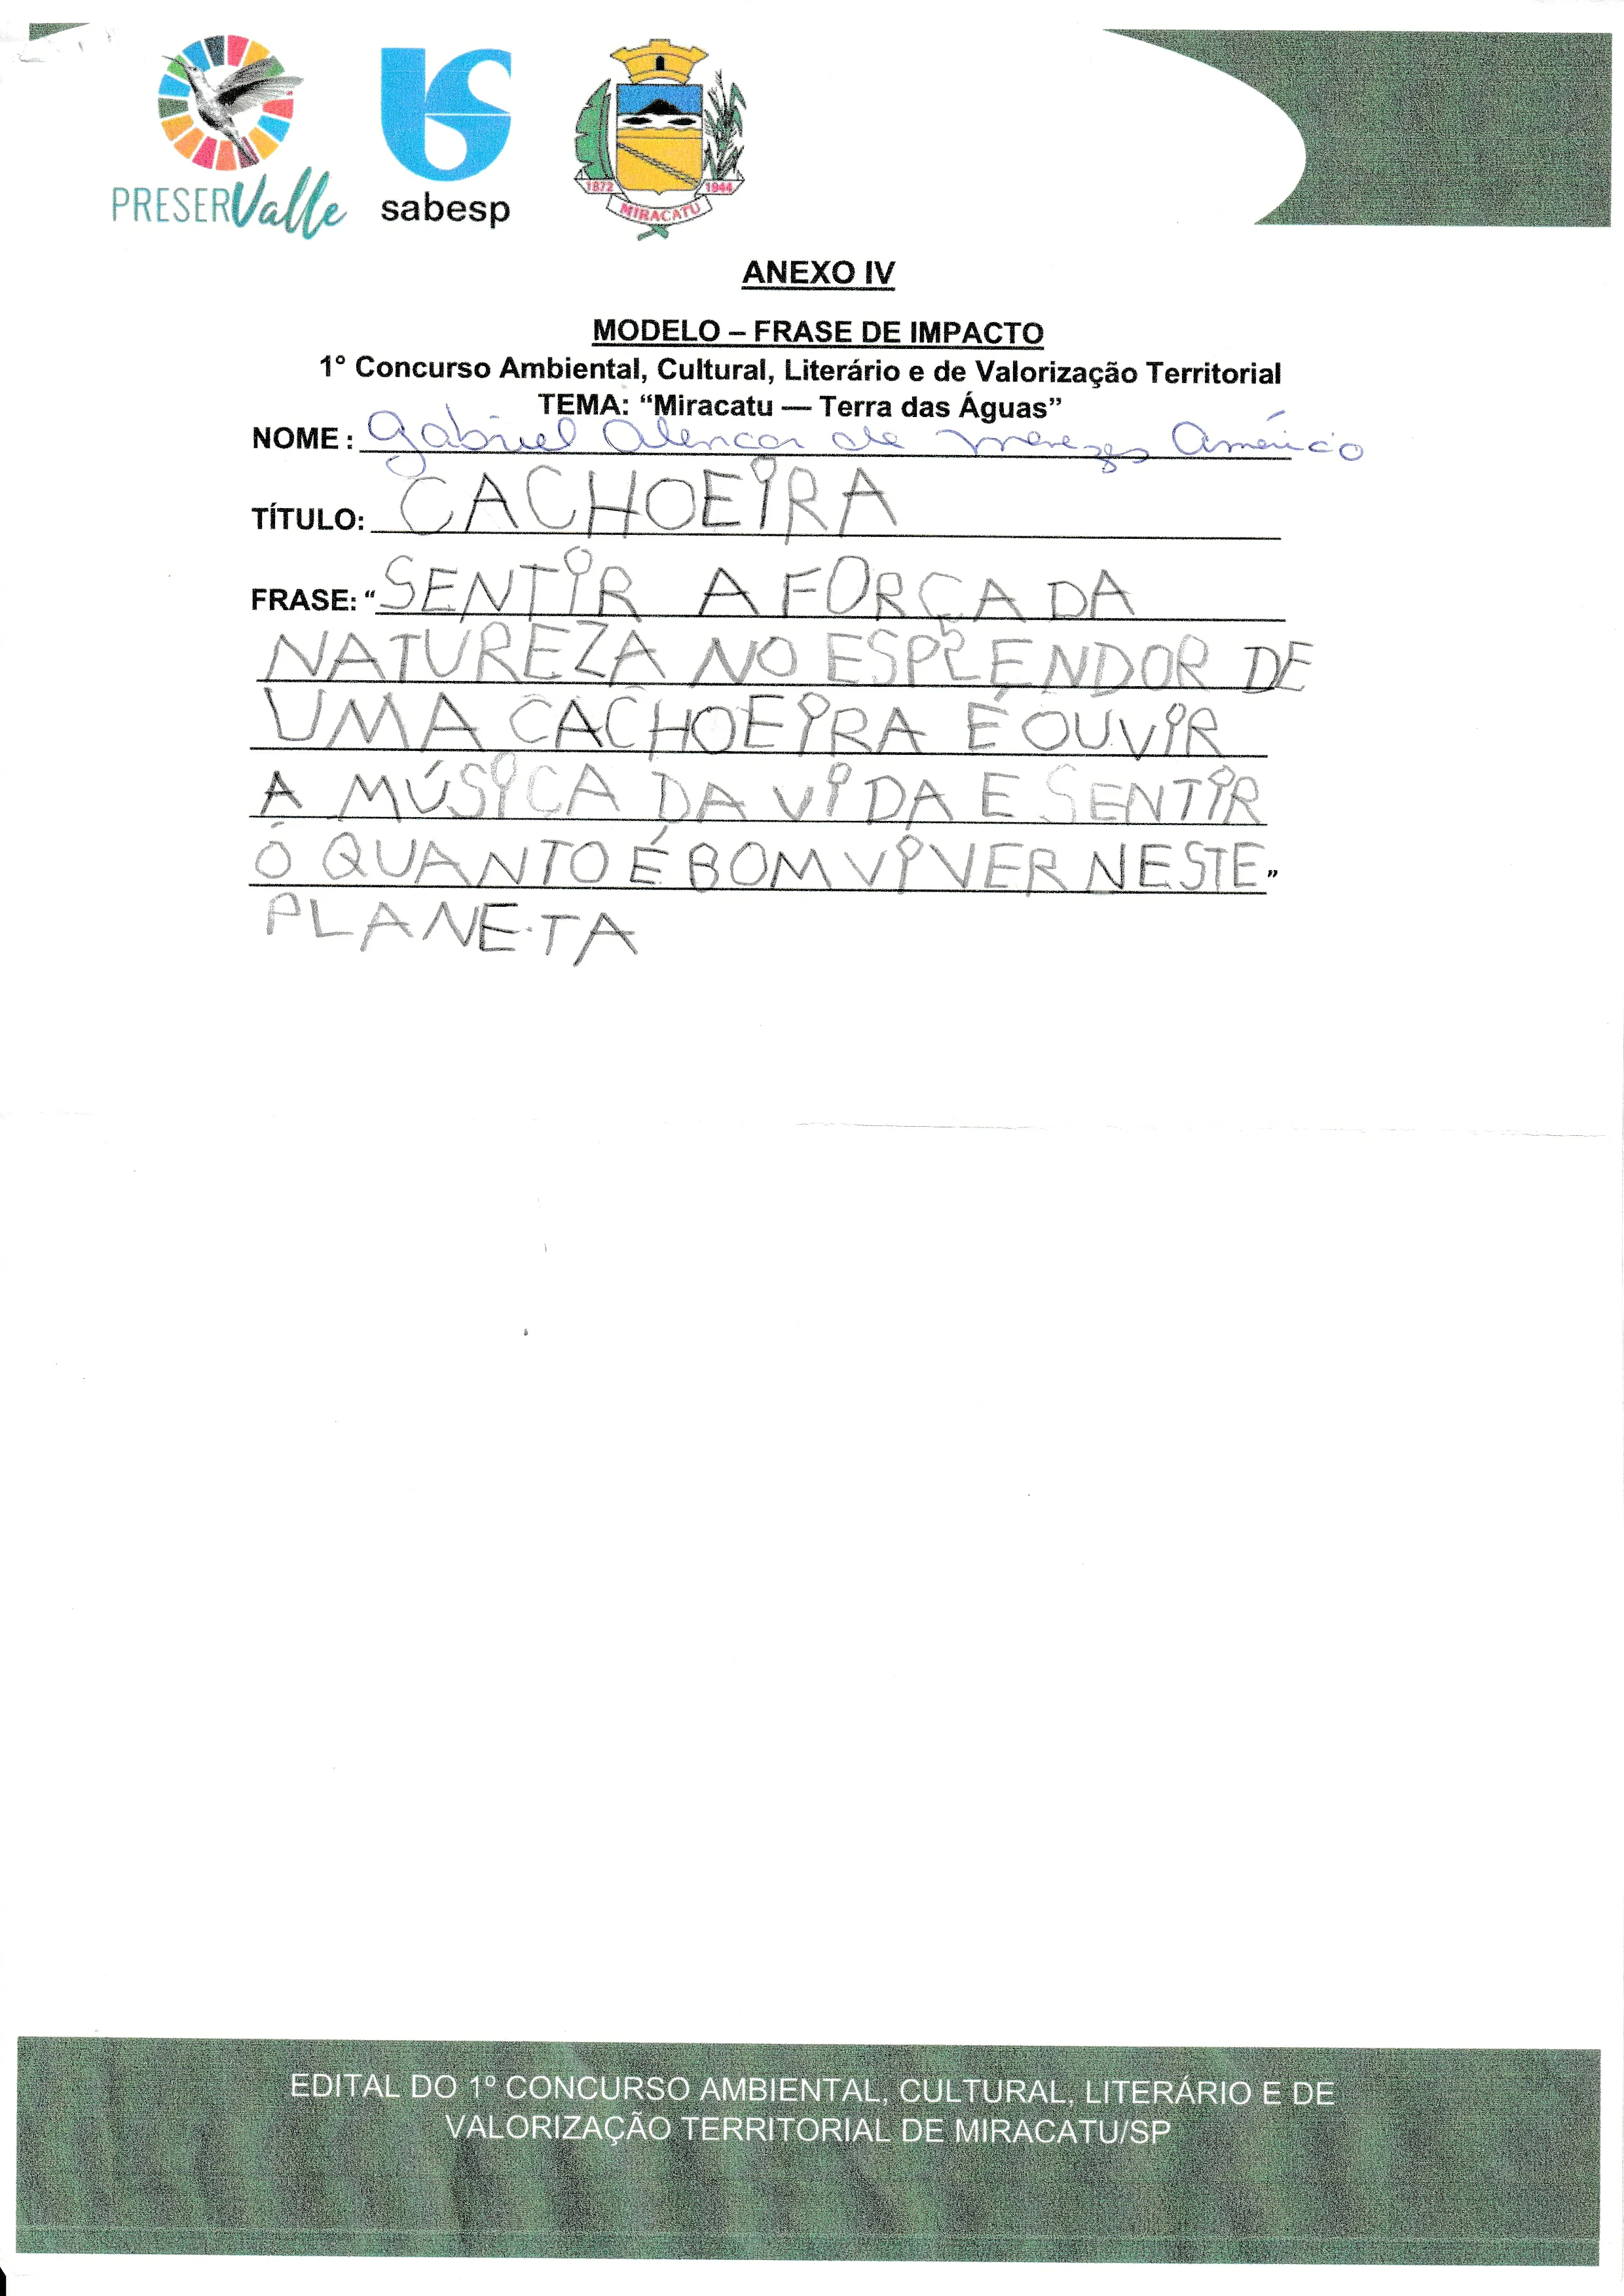 PRESERValle
sabesp
1872 1944
MIRACATU
ANEXO IV
MODELO – FRASE DE IMPACTO
1° Concurso Ambiental, Cultural, Literário e de Valorização Territorial
TEMA: “Miracatu — Terra das Águas”
NOME : Gabriel Alencar de Menezes Américo
TÍTULO: CACHOEIRA
FRASE: “ SENTIR A FORÇA DA
NATUREZA NO ESPLENDOR DE
UMA CACHOEIRA É OUVIR
A MÚSICA DA VIDA E SENTIR
O QUANTO É BOM VIVER NESTE ”
PLANETA
EDITAL DO 1º CONCURSO AMBIENTAL, CULTURAL, LITERÁRIO E DE
VALORIZAÇÃO TERRITORIAL DE MIRACATU/SP